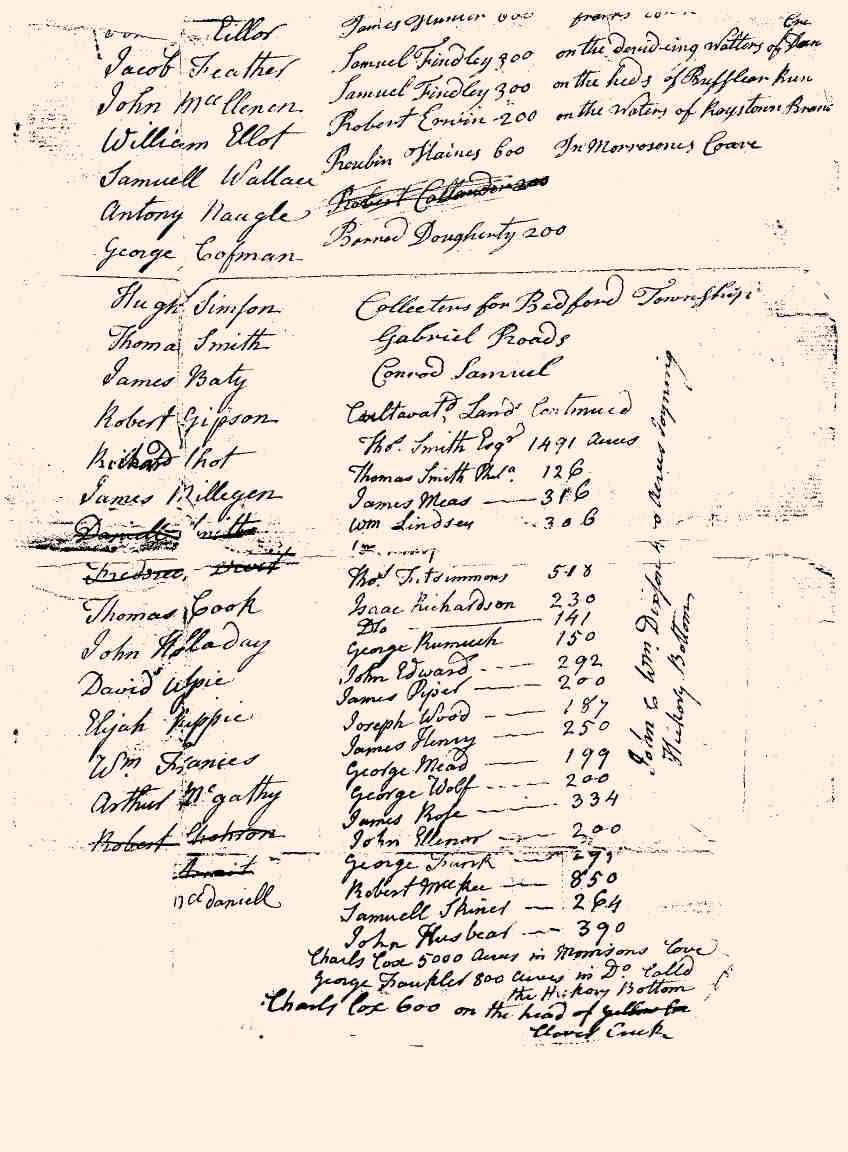 Eillor
James Hunter 600
Jacob Feather
Samuel Findley 300 on the devideing Watters of
John McClenen
Samuel Findley 300 on the heds of Bufflear Run
William Ellot
Robert Erwin 200 on the Waters of Raystown Branc
Samuell Wallace
Reubin Haines 600 In Morrosones Coave
Antony Naugle
Robert Callender 200
George Cofman
Barned Dougherty 200
Hugh Simson
Collecters for Bedford Township
Thoma Smith
Gabriel Roads
James Baty
Conrod Samuel
Robert Gipson
Cultavatd Land Continued
Richard Shot
Thos. Smith Esqr 1491 acres
James Millegen
Thomas Smith Phla. 126
James Meas 316
Daniell Smith
Wm Lindsey 306
Thos. Fitsimmons 518
Thomas Cook
Isaac Richardson 230
Do 141
John Holladay
George Rumuck 150
John Edward 292
David Uspie
James Piper 200
Elijah Kippie
Joseph Wood 187
James Henry 250
Wm Frances
George Mead 199
George Wolf 200
Arthur McGathy
James Rose 334
Robert
John Ellenor 200
George Funk 291
Robert McKee 850
McCdaniell
Samuell Skiner 264
John Husbear 390
Charls Cox 5000 acres in Morrisons Cove
George Fraukler 800 acres in Do. Calld
the Hickory Bottom
Charls Cox 600 on the head of
Clover Creek
John & Wm. Dixson acres Joyning
Hickory Bottom